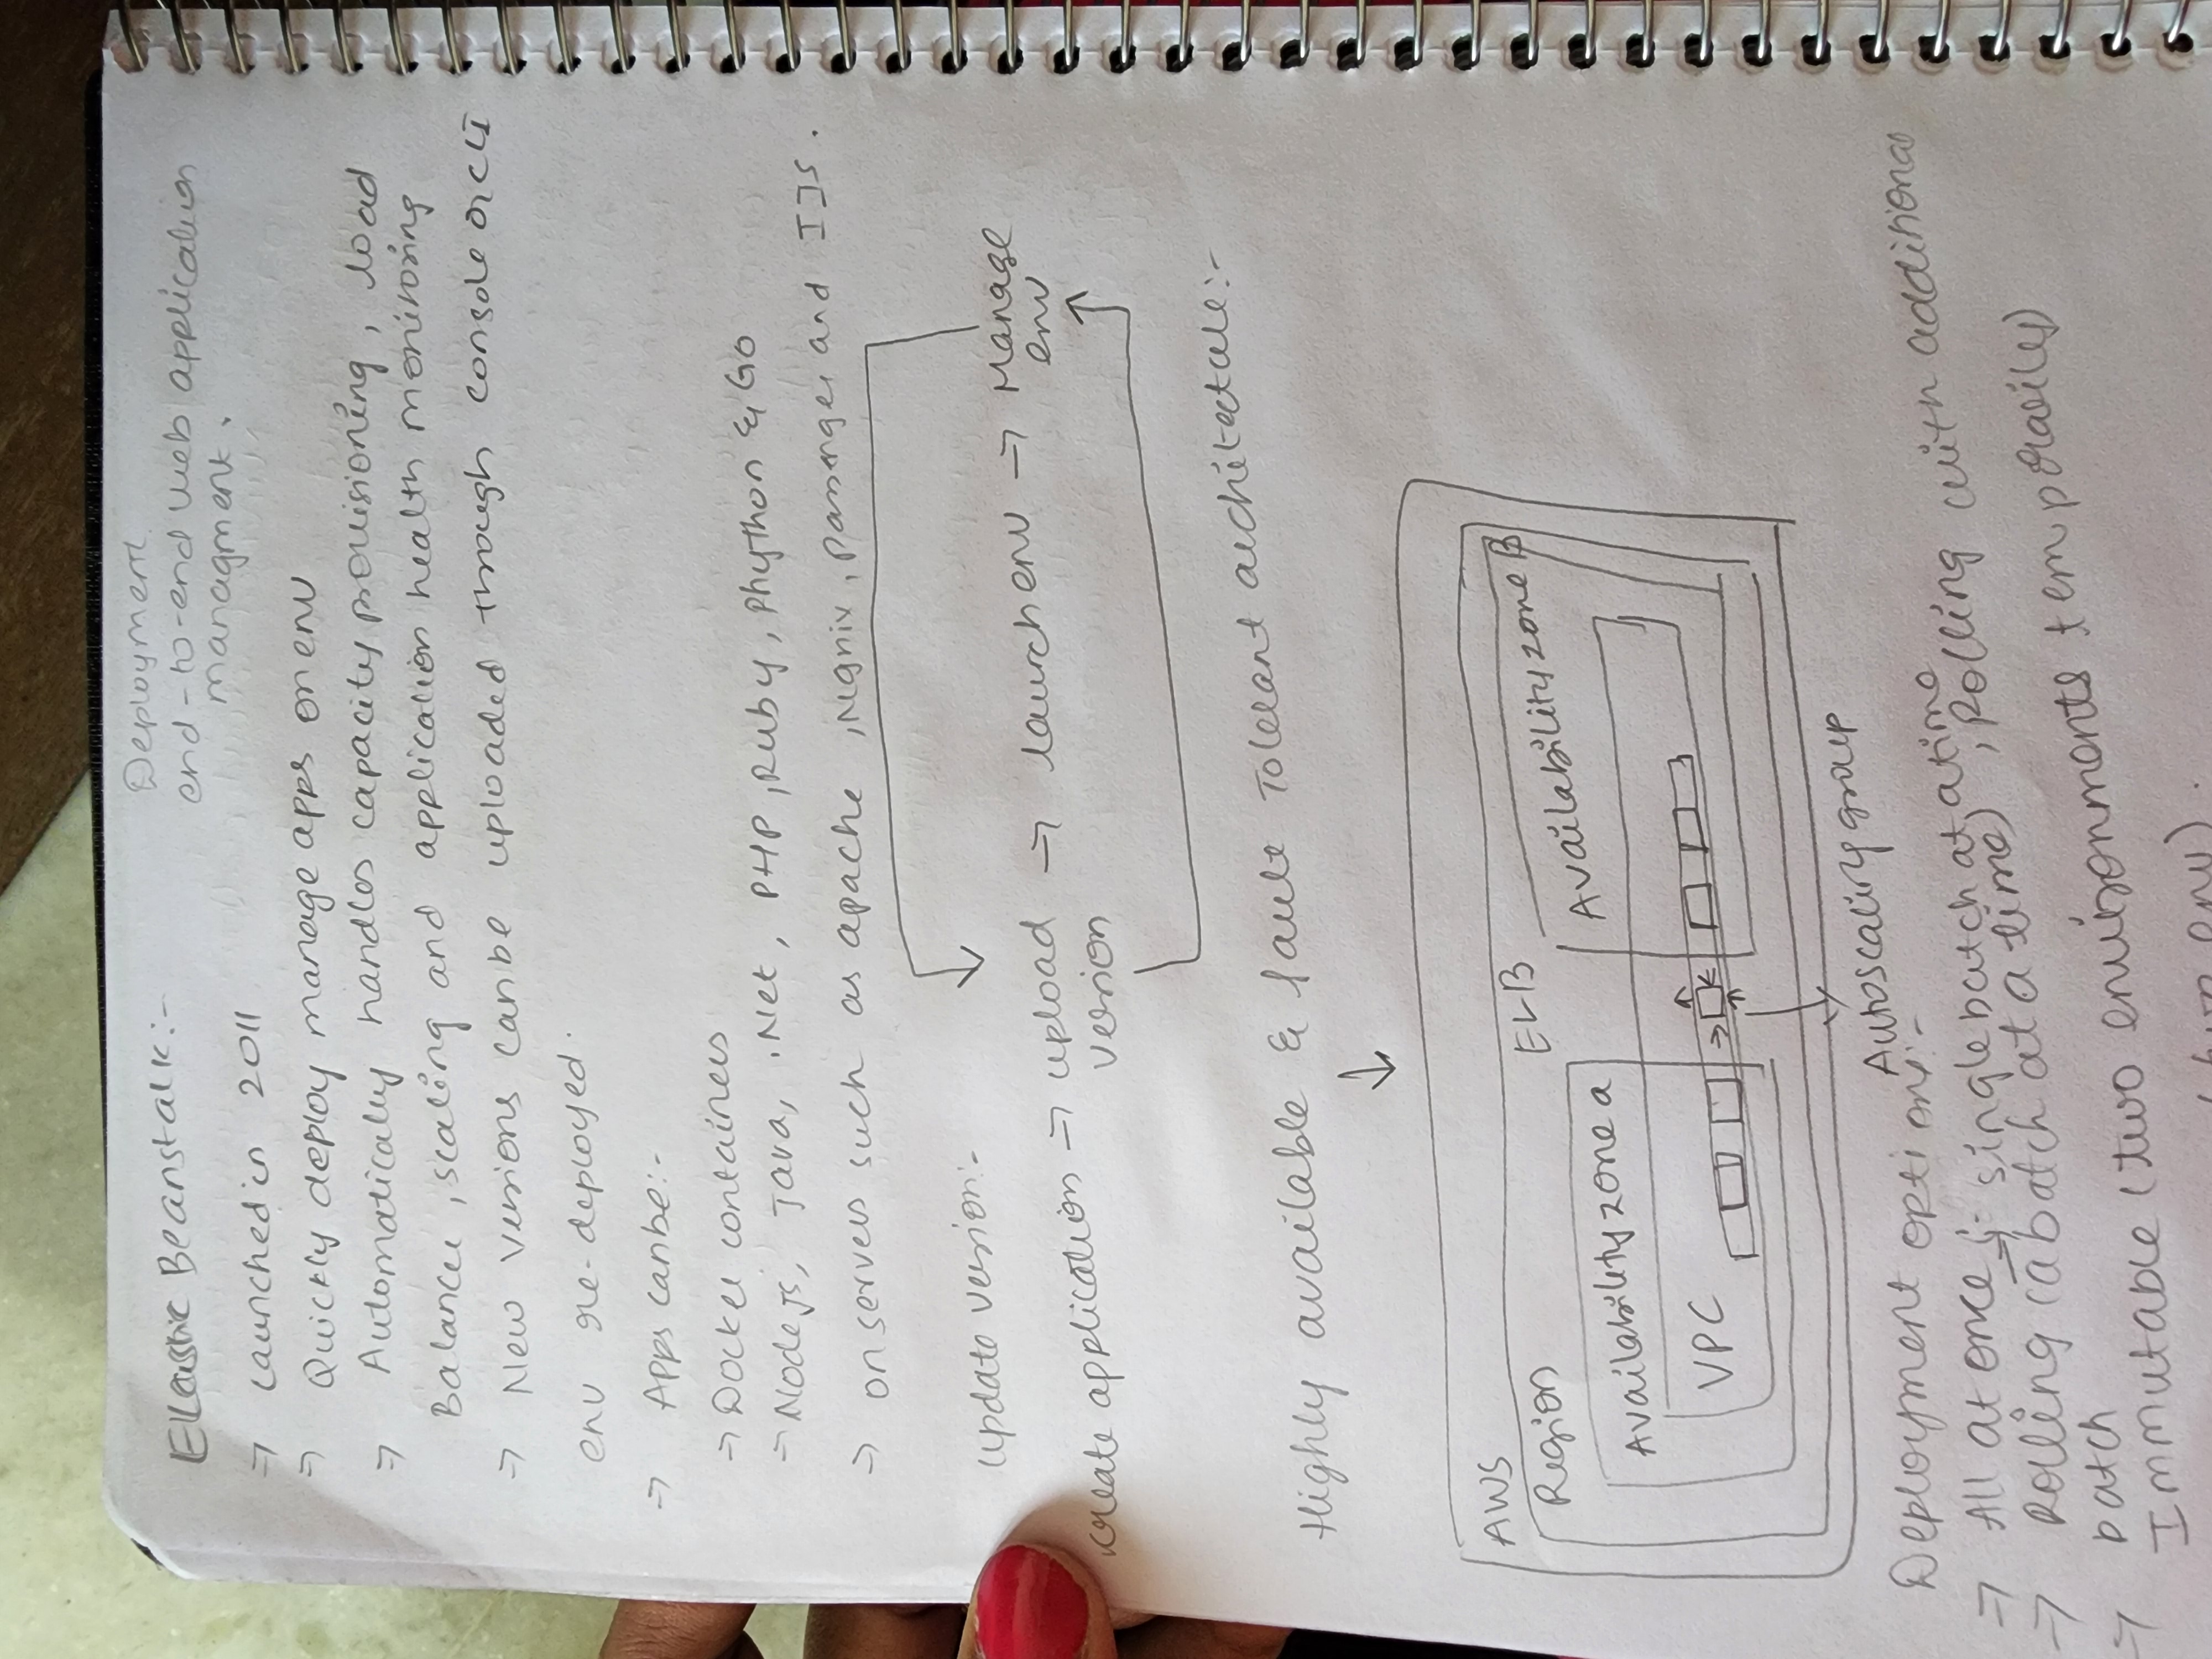 Elastic Beanstalk:-
Deployment
end-to-end web application
managment.
→ Launched in 2011
→ Quickly deploy manage apps on env
→ Automatically handles capacity provisioning, load
Balancer, scaling and application health monitoring
→ New versions can be uploaded through console or CLI
env re-deployed.
→ Apps can be:-
→ Docker containers
→ Node js, Java, .Net, PHP, Ruby, Phython & Go
→ on servers such as apache, Ngnix, passenger and IIS.
update version:-
create application → upload version → launch env → Manage env
Highly available & fault Tolerant architecture:-
↓
AWS
Region
ELB
Availability zone a
Availability zone B
VPC
Autoscaling group
Deployment options:-
→ All at once :- single batch at a time
→ Rolling (a batch at a time), Rolling with additional
batch
→ Immutable (two environments temporarily)
(two env).